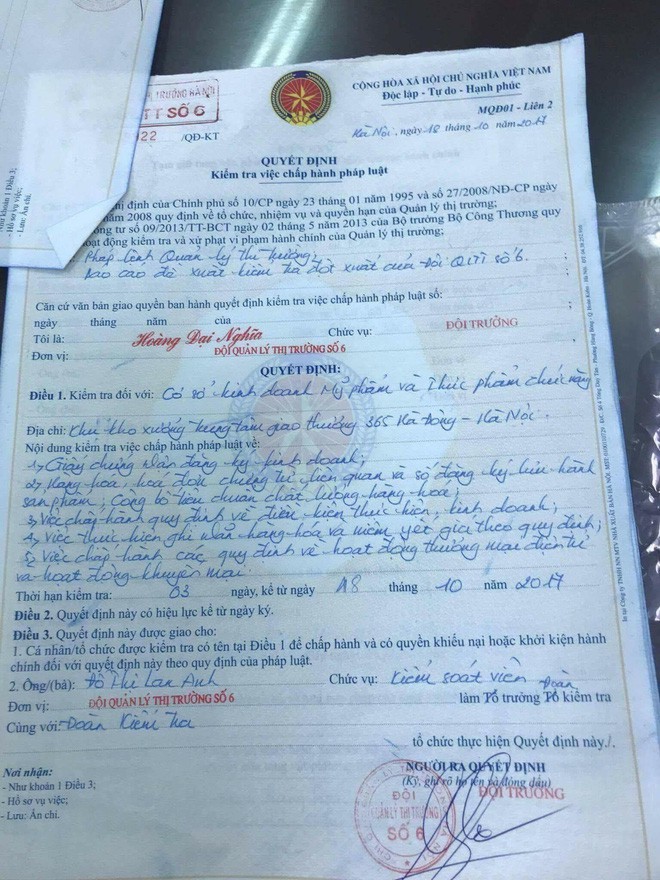 TRƯỜNG HÀ NỘI
TT SỐ 6
022 /QĐ-KT
CỘNG HÒA XÃ HỘI CHỦ NGHĨA VIỆT NAM
Độc lập - Tự do - Hạnh phúc
MQĐ01 - Liên 2
Hà Nội, ngày 18 tháng 10 năm 2017
QUYẾT ĐỊNH
Kiểm tra việc chấp hành pháp luật
định của Chính phủ số 10/CP ngày 23 tháng 01 năm 1995 và số 27/2008/NĐ-CP ngày
năm 2008 quy định về tổ chức, nhiệm vụ và quyền hạn của Quản lý thị trường;
tư số 09/2013/TT-BCT ngày 02 tháng 5 năm 2013 của Bộ trưởng Bộ Công Thương quy
hoạt động kiểm tra và xử phạt vi phạm hành chính của Quản lý thị trường;
Pháp lệnh Quản lý thị trường;
Báo cáo đề xuất kiểm tra đột xuất của Đội QLTT số 6.
Căn cứ văn bản giao quyền ban hành quyết định kiểm tra việc chấp hành pháp luật số:
ngày tháng năm của
Tôi là: Hoàng Đại Nghĩa Chức vụ: ĐỘI TRƯỞNG
Đơn vị: ĐỘI QUẢN LÝ THỊ TRƯỜNG SỐ 6
QUYẾT ĐỊNH:
Điều 1. Kiểm tra đối với: Cơ sở kinh doanh Mỹ phẩm và Thực phẩm chức năng
Địa chỉ: Khu kho xưởng trung tâm giao thương 365 Hà Đông - Hà Nội.
Nội dung kiểm tra việc chấp hành pháp luật về:
1, Giấy chứng nhận đăng ký kinh doanh;
2, Hàng hóa, hóa đơn chứng từ liên quan và số đăng ký lưu hành
sản phẩm; Công bố tiêu chuẩn chất lượng hàng hóa;
3, Việc chấp hành quy định về điều kiện thực hiện kinh doanh;
4, Việc thực hiện ghi nhãn hàng hóa và niêm yết giá theo quy định;
5, Việc chấp hành các quy định về hoạt động thương mại điện tử
và hoạt động khuyến mại.
Thời hạn kiểm tra: 03 ngày, kể từ ngày 18 tháng 10 năm 2017
Điều 2. Quyết định này có hiệu lực kể từ ngày ký.
Điều 3. Quyết định này được giao cho:
1. Cá nhân/tổ chức được kiểm tra có tên tại Điều 1 để chấp hành và có quyền khiếu nại hoặc khởi kiện hành
chính đối với quyết định này theo quy định của pháp luật.
2. Ông/(bà): Đỗ Thị Lan Anh Chức vụ: Kiểm soát viên
Đoàn
Đơn vị: ĐỘI QUẢN LÝ THỊ TRƯỜNG SỐ 6 làm Tổ trưởng Tổ kiểm tra
Cùng với: Đoàn Kiểm tra
tổ chức thực hiện Quyết định này./.
Nơi nhận:
- Như khoản 1 Điều 3;
- Hồ sơ vụ việc;
- Lưu: Ấn chỉ.
NGƯỜI RA QUYẾT ĐỊNH
(Ký, ghi rõ họ tên và đóng dấu)
ĐỘI TRƯỞNG
ĐỘI
QUẢN LÝ THỊ TRƯỜNG
SỐ 6
Như khoản 1 Điều 3;
- Hồ sơ vụ việc;
- Lưu: Ấn chỉ.